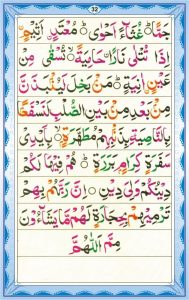 32
جَمًّا ۝ غُثَآءً اَحْوٰى ۝ مُعْتَدٍ اَثِيْمٍ
اِذَا تُتْلٰى نَارًا حَامِيَةً ۝ تُسْقٰى مِنْ
عَيْنٍ اٰنِيَةٍ ۝ مَنْۢ بَخِلَ لَيُنْۢبَذَنَّ
مِنْۢ بَعْدِ مِنْۢ بَيْنِ الصُّلْبِ لَنَسْفَعًۢا
بِالنَّاصِيَةِ بِاَيْدِيْ
سَفَرَةٍ ۝ كِرَامٍۢ بَرَرَةٍ ۝ هُمْ فِيْهَا لَكُمْ
دِيْنُكُمْ وَلِيَ دِيْنِ ۝ اِنَّ رَبَّهُمْ بِهِمْ
تَرْمِيْهِمْ بِحِجَارَةٍ لَهُمْ مَّا يَشَآءُوْنَ
مِمَّ اللّٰهُمَّ